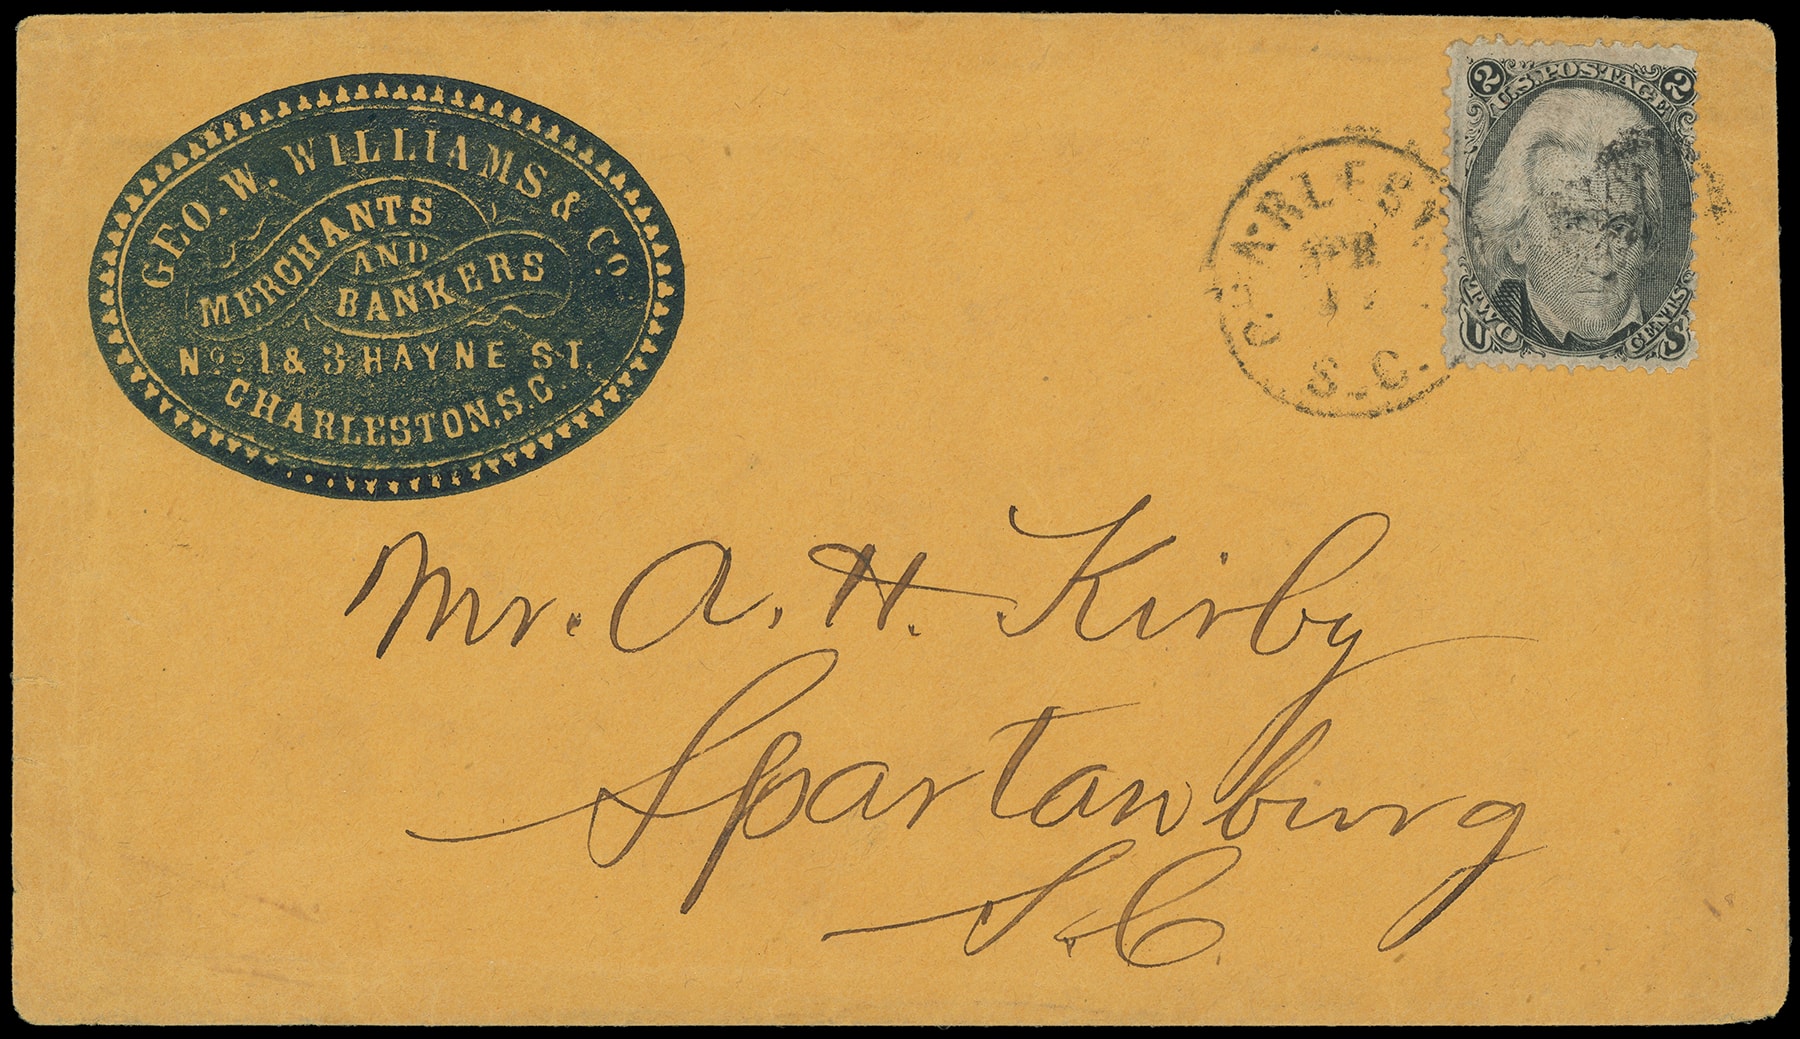 GEO. W. WILLIAMS & CO.
MERCHANTS
AND
BANKERS
Nos 1 & 3 HAYNE ST,
CHARLESTON, S.C.
APR
S.C.
2 U.S. POSTAGE 2
TWO CENTS
U S
Mr. A. H. Kirby
Spartanburg
S.C.